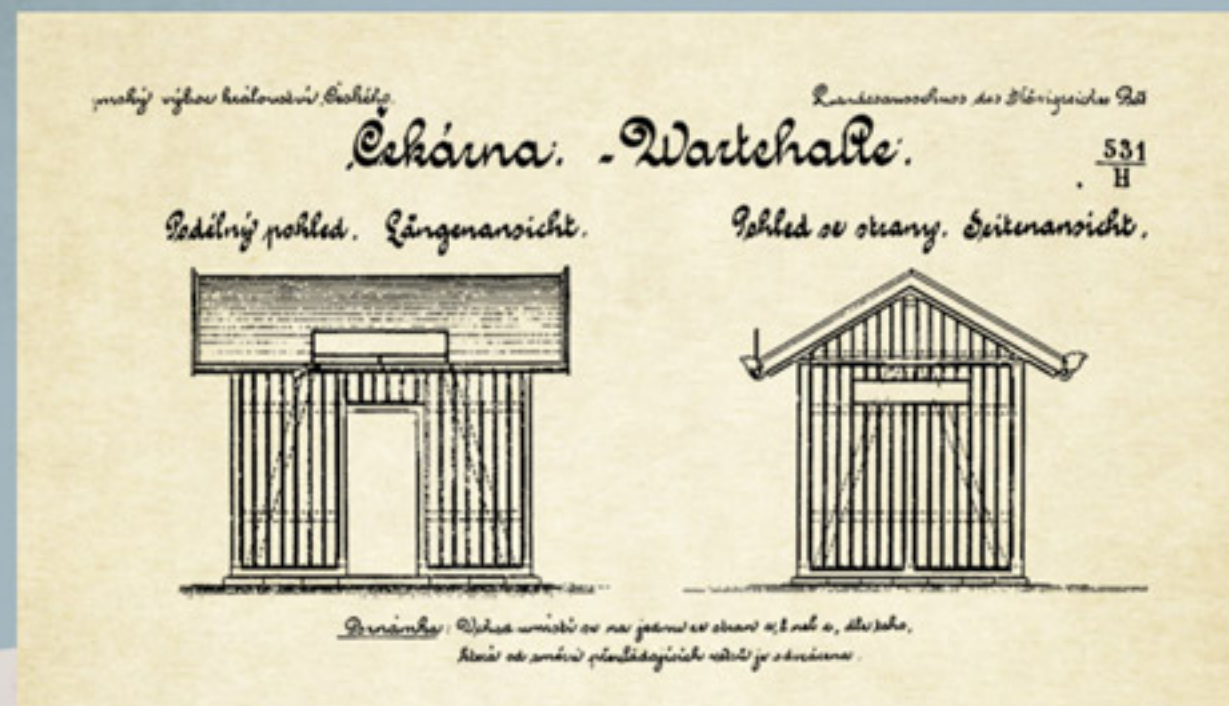 výbor království Českého. Landesausschuss des Königreiches Bö
Čekárna. - Wartehalle. 531
H
Podélný pohled. Längenansicht. Pohled se strany. Seitenansicht.
Poznámka: Vchod umístí se na jednu ze stran a, b neb c, dle toho,
která od směru převládajících větrů je odvrácena.